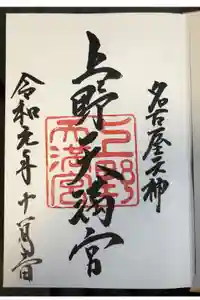 名古屋天神
上野天満宮
上野
天満宮
令和元年十月